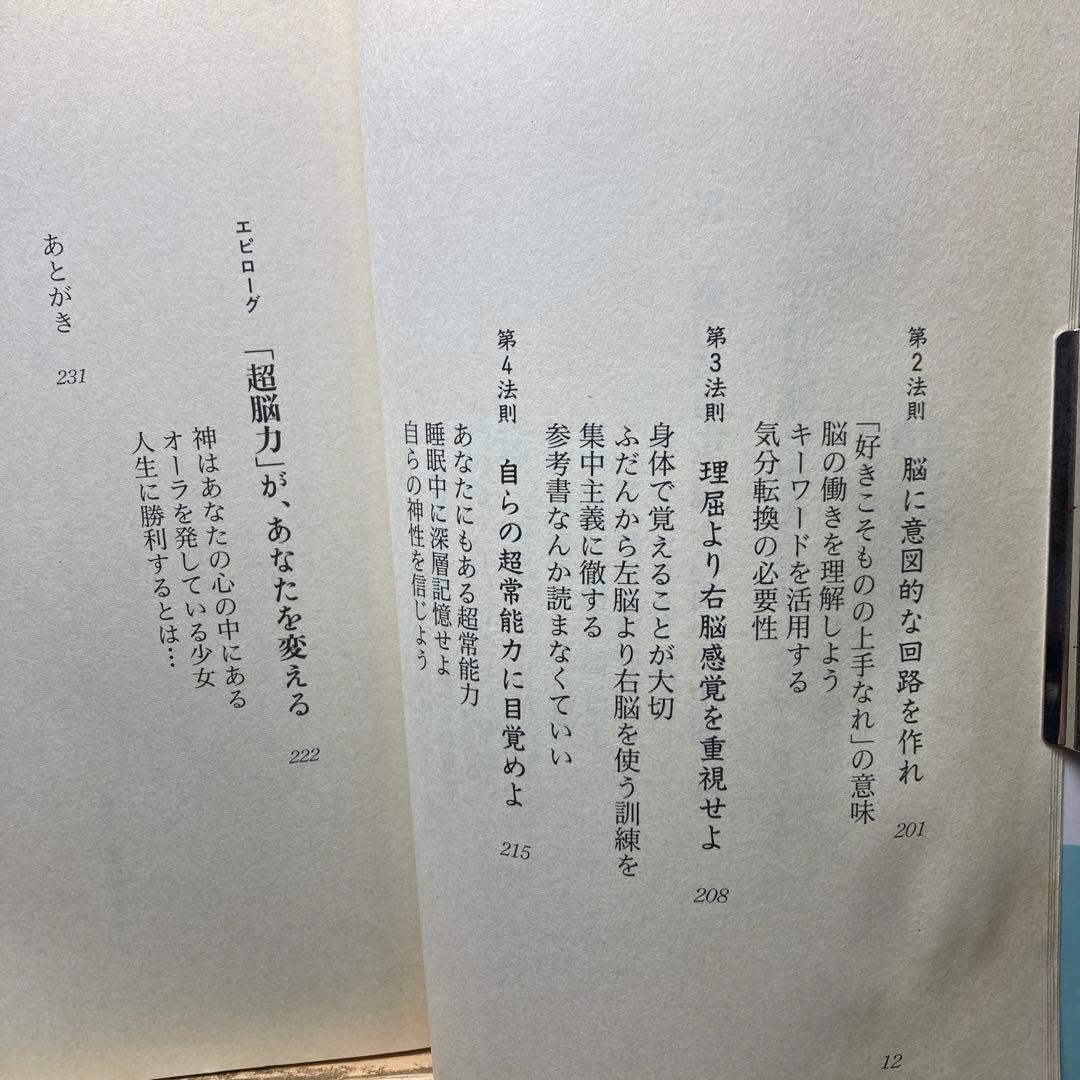 第2法則 脳に意図的な回路を作れ 201
「好きこそものの上手なれ」の意味
脳の働きを理解しよう
キーワードを活用する
気分転換の必要性
第3法則 理屈より右脳感覚を重視せよ 208
身体で覚えることが大切
ふだんから左脳より右脳を使う訓練を
集中主義に徹する
参考書なんか読まなくていい
第4法則 自らの超常能力に目覚めよ 215
あなたにもある超常能力
睡眠中に深層記憶せよ
自らの神性を信じよう
12
エピローグ 「超脳力」が、あなたを変える 222
神はあなたの心の中にある
オーラを発している少女
人生に勝利するとは…
あとがき 231